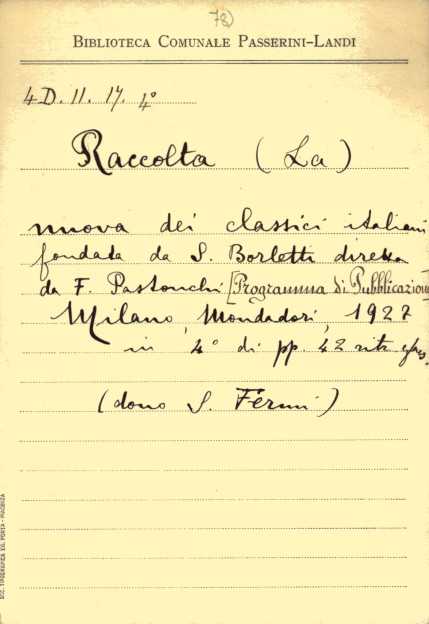 78)
BIBLIOTECA COMUNALE PASSERINI-LANDI
4 D. 11. 17. 4°
Raccolta (La)
nuova dei classici italiani
fondata da S. Borletti diretta
da F. Pastonchi [Programma di Pubblicazione]
Milano, Mondadori, 1927
in 4° di pp. 42
(dono S. Fermi)
SOC. TIPOGRAFICA ED. PORTA - PIACENZA